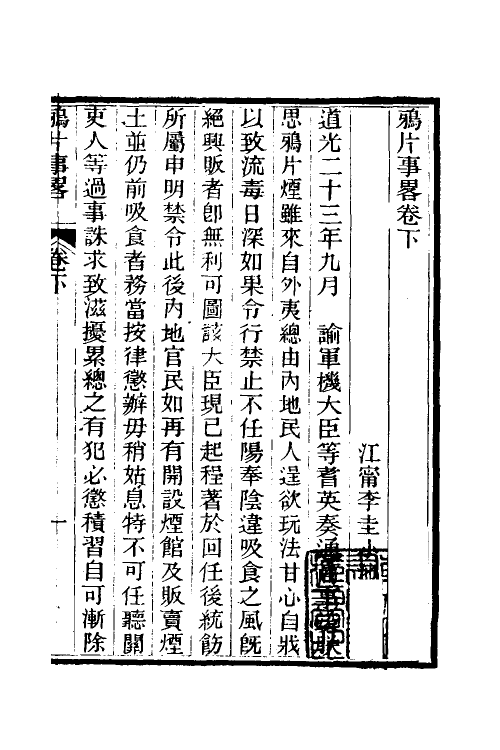 鴉片事畧卷下
江甯李圭
道光二十三年九月　諭軍機大臣等耆英奏通
思鴉片煙雖來自外夷總由內地民人逞欲玩法甘心自戕
以致流毒日深如果令行禁止不任陽奉陰違吸食之風旣
絕興販者卽無利可圖該大臣現已起程著於回任後統飭
所屬申明禁令此後內地官民如再有開設煙館及販賣煙
土並仍前吸食者務當按律懲辦毋稍姑息特不可任聽關
吏人等過事誅求致滋擾累總之有犯必懲積習自可漸除
鴉片事畧
卷下
一